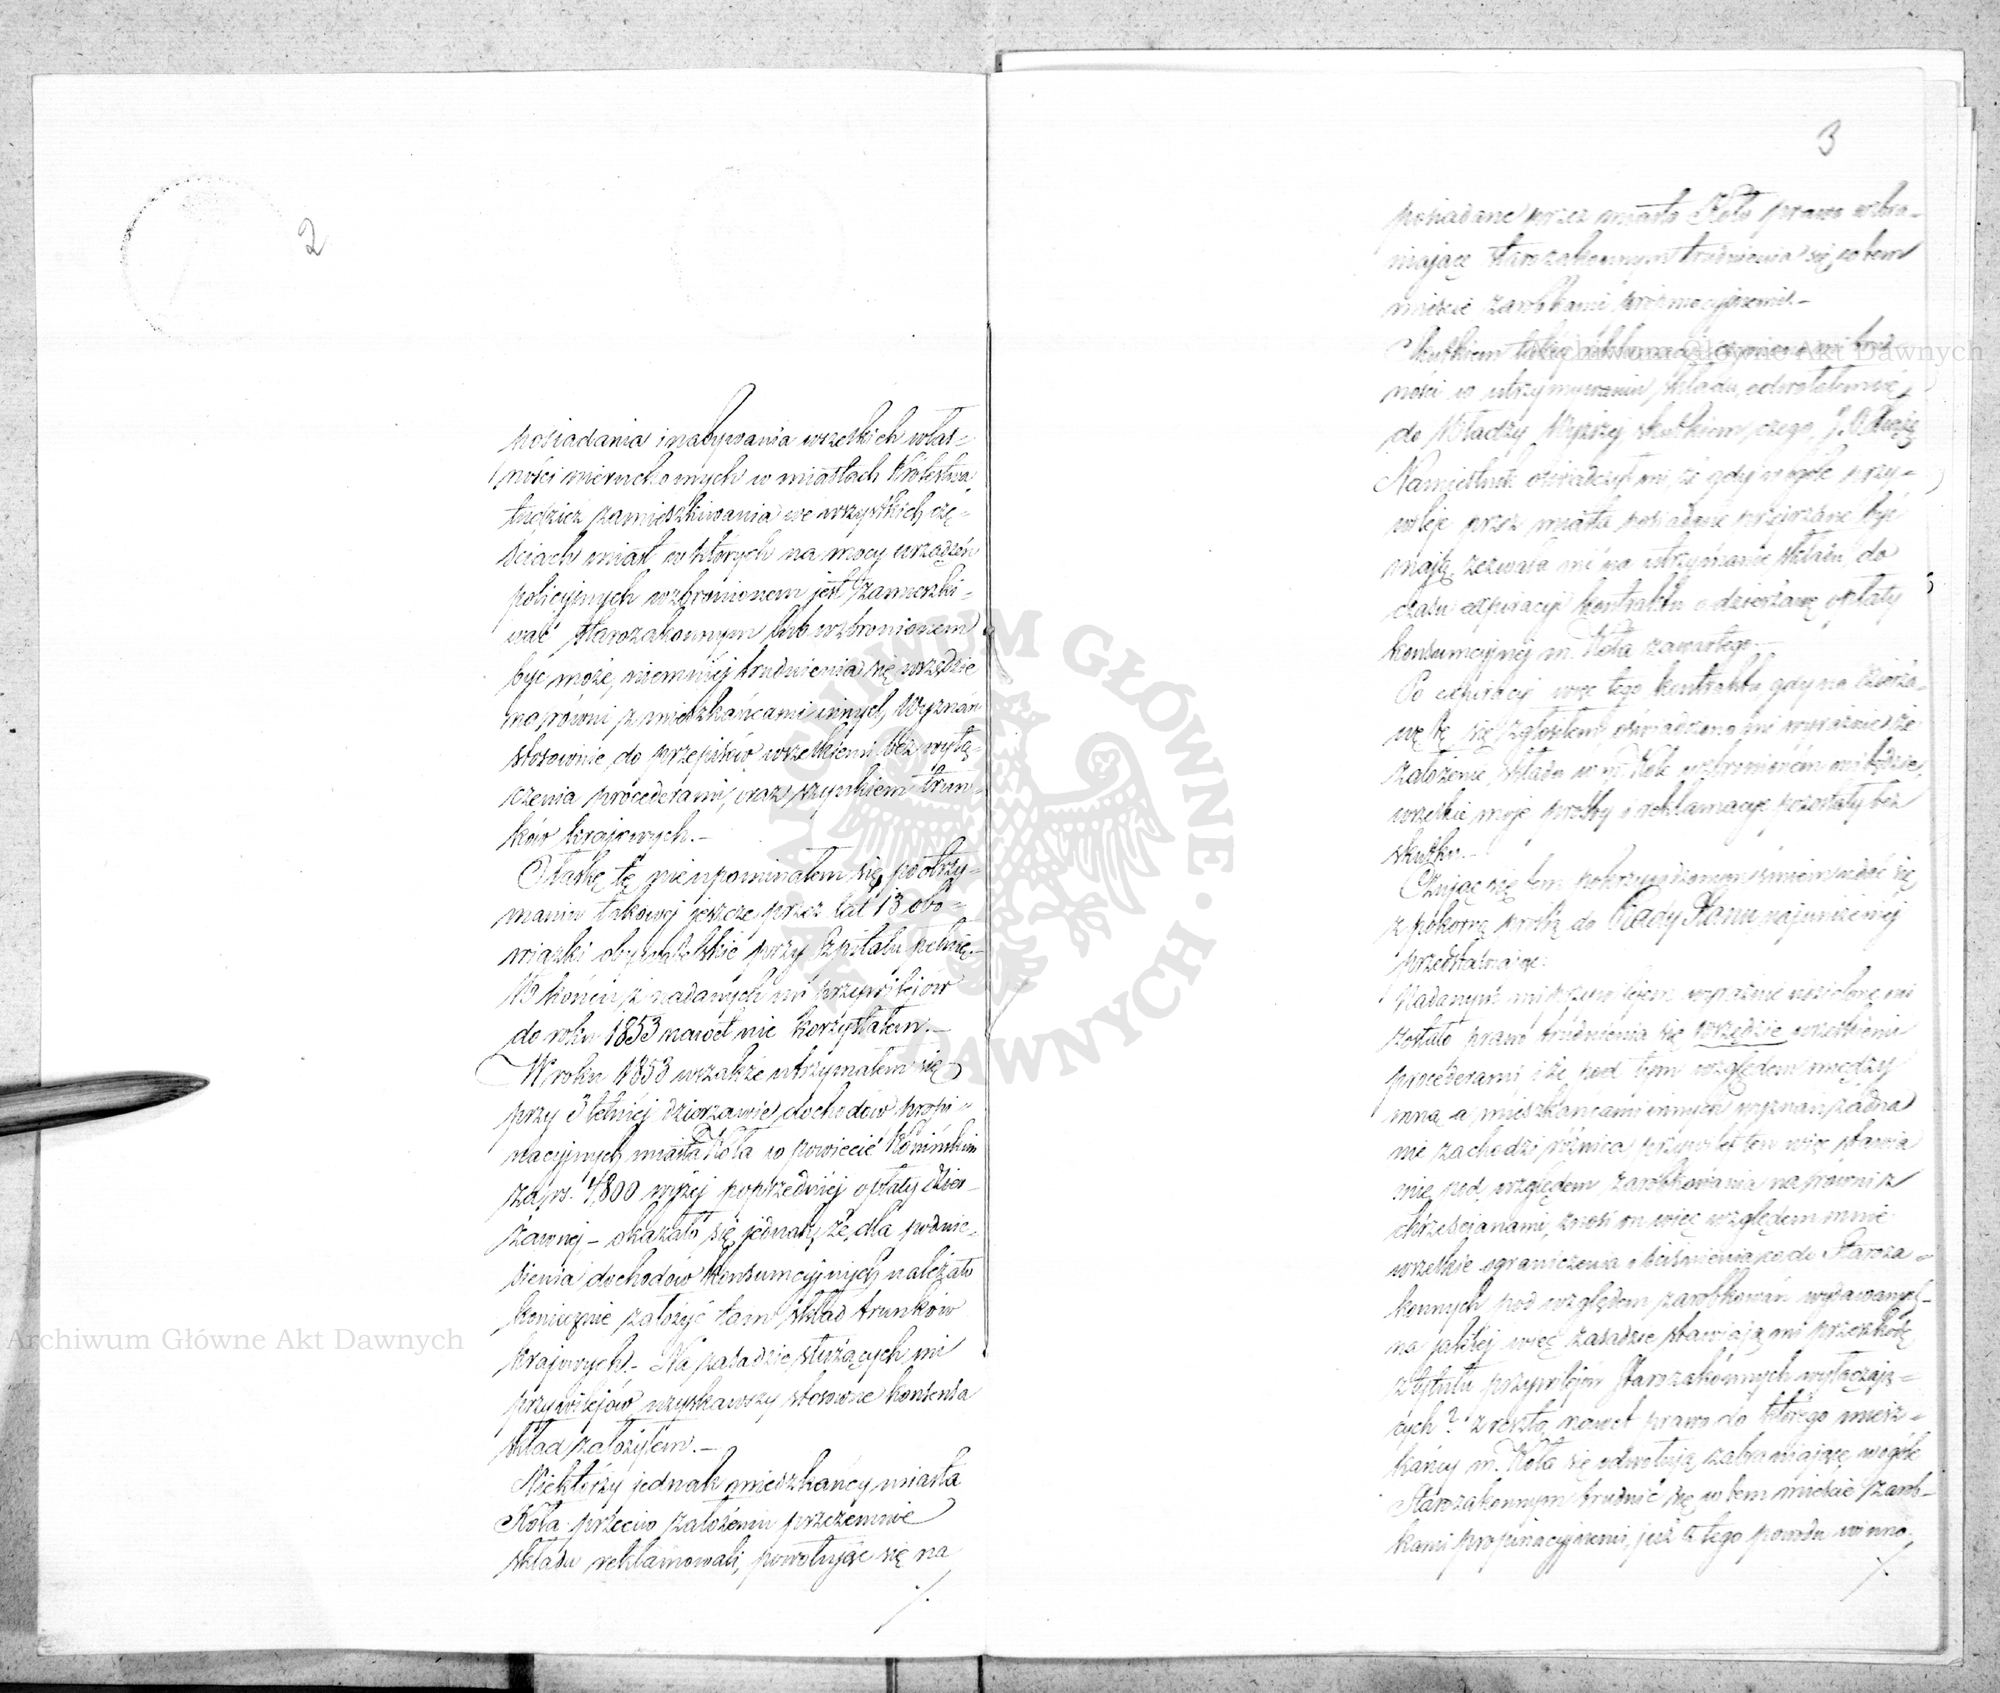 2
posiadania i nabywania wszelkich włas=
ności nieruchomych w miastach Królestwa
tudzież zamieszkiwania we wszystkich czę=
ściach miast w których na mocy urządzeń
policyjnych wzbronionem jest zamieszki=
wać starozakonnym lub wzbronionem
być może, niemniej trudnienia się wszędzie
na równi z mieszkańcami innych Wyznań
stosownie do przepisów wszelkiemi bez wyłą=
czenia procederami, oraz szynkiem trun=
ków krajowych.–
O łaskę tę nie upominałem się, po otrzy=
maniu takowej jeszcze przez lat 13 obo=
wiązki obywatelskie przy Szpitalu pełnię.–
W końcu z nadanych mi przywilejów
do roku 1853 nawet nie korzystałem.–
W roku 1853 wszakże utrzymałem się
przy 3 letniej dzierżawie dochodów propi=
nacyjnych miasta Koła w powiecie Konińskim
za rs. 4,800 wyżej poprzedniej opłaty dzier=
żawnej – okazało się jednak, że dla podnie=
sienia dochodów konsumcyjnych należało
koniecznie założyć tam skład trunków
krajowych.– Na zasadzie służących mi
przywilejów uzyskawszy stosowne konsensa
skład założyłem.–
Niektórzy jednak mieszkańcy miasta
Koła przeciw założeniu przezemnie
składu reklamowali, powołując się na
./.
3
posiadane przez miasto Koło prawo wzbra=
niające starozakonnym trudnienia się w tem
mieście zarobkami propinacyjnemi.–
Skutkiem takiej reklamacji czyniono mi trud=
ności w utrzymywaniu składu, odwołałem się
do Władzy Wyższej skutkiem czego, J.O. Książę
Namiestnik oświadczył mi, że gdy w ogóle przy=
wileje przez miasta posiadane przejrzane być
mają, zezwala mi na utrzymanie składu, do
czasu expiracyi kontraktu o dzierżawę opłaty
konsumcyjnej m. Koła zawartego.–
Po expiracyi więc tego kontraktu gdy na dzierża=
wę tę się zgłosiłem oświadczono mi wyraźnie że
założenie składu w m. Kole wzbronionem mi będzie,
wszelkie moje prośby i reklamacye pozostały bez
skutku.–
Czując się tem pokrzywdzonym śmiem udać się
z pokorną prośbą do Rady Stanu najuniżeniej
przedstawiając:
Nadanym mi przywilejem wyraźnie udzielone mi
zostało prawo trudnienia się wszędzie wszelkiemi
procederami i że pod tym względem między
mną a mieszkańcami innych wyznań żadna
nie zachodzi różnica przywilej ten więc stawia
mię pod względem zarobkowania na równi z
chrześcijanami, znosi on więc względem mnie
wszelkie ograniczenia i ścieśnienia co do Staroza=
konnych pod względem zarobkowań wydawanych–
na jakiej więc zasadzie stawiają mi przeszkodę
z tytułu przywilejów Starozakonnych wyłączają=
cych? zresztą nawet prawo do którego miesz=
kańcy m. Koła się odwołują zabraniające w ogóle
Starozakonnym trudnić się w tem mieście zarob=
kami propinacyjnemi, już z tego powodu winno
./.
Archiwum Główne Akt Dawnych
Archiwum Główne Akt Dawnych
ARCHIWUM GŁÓWNE AKT DAWNYCH